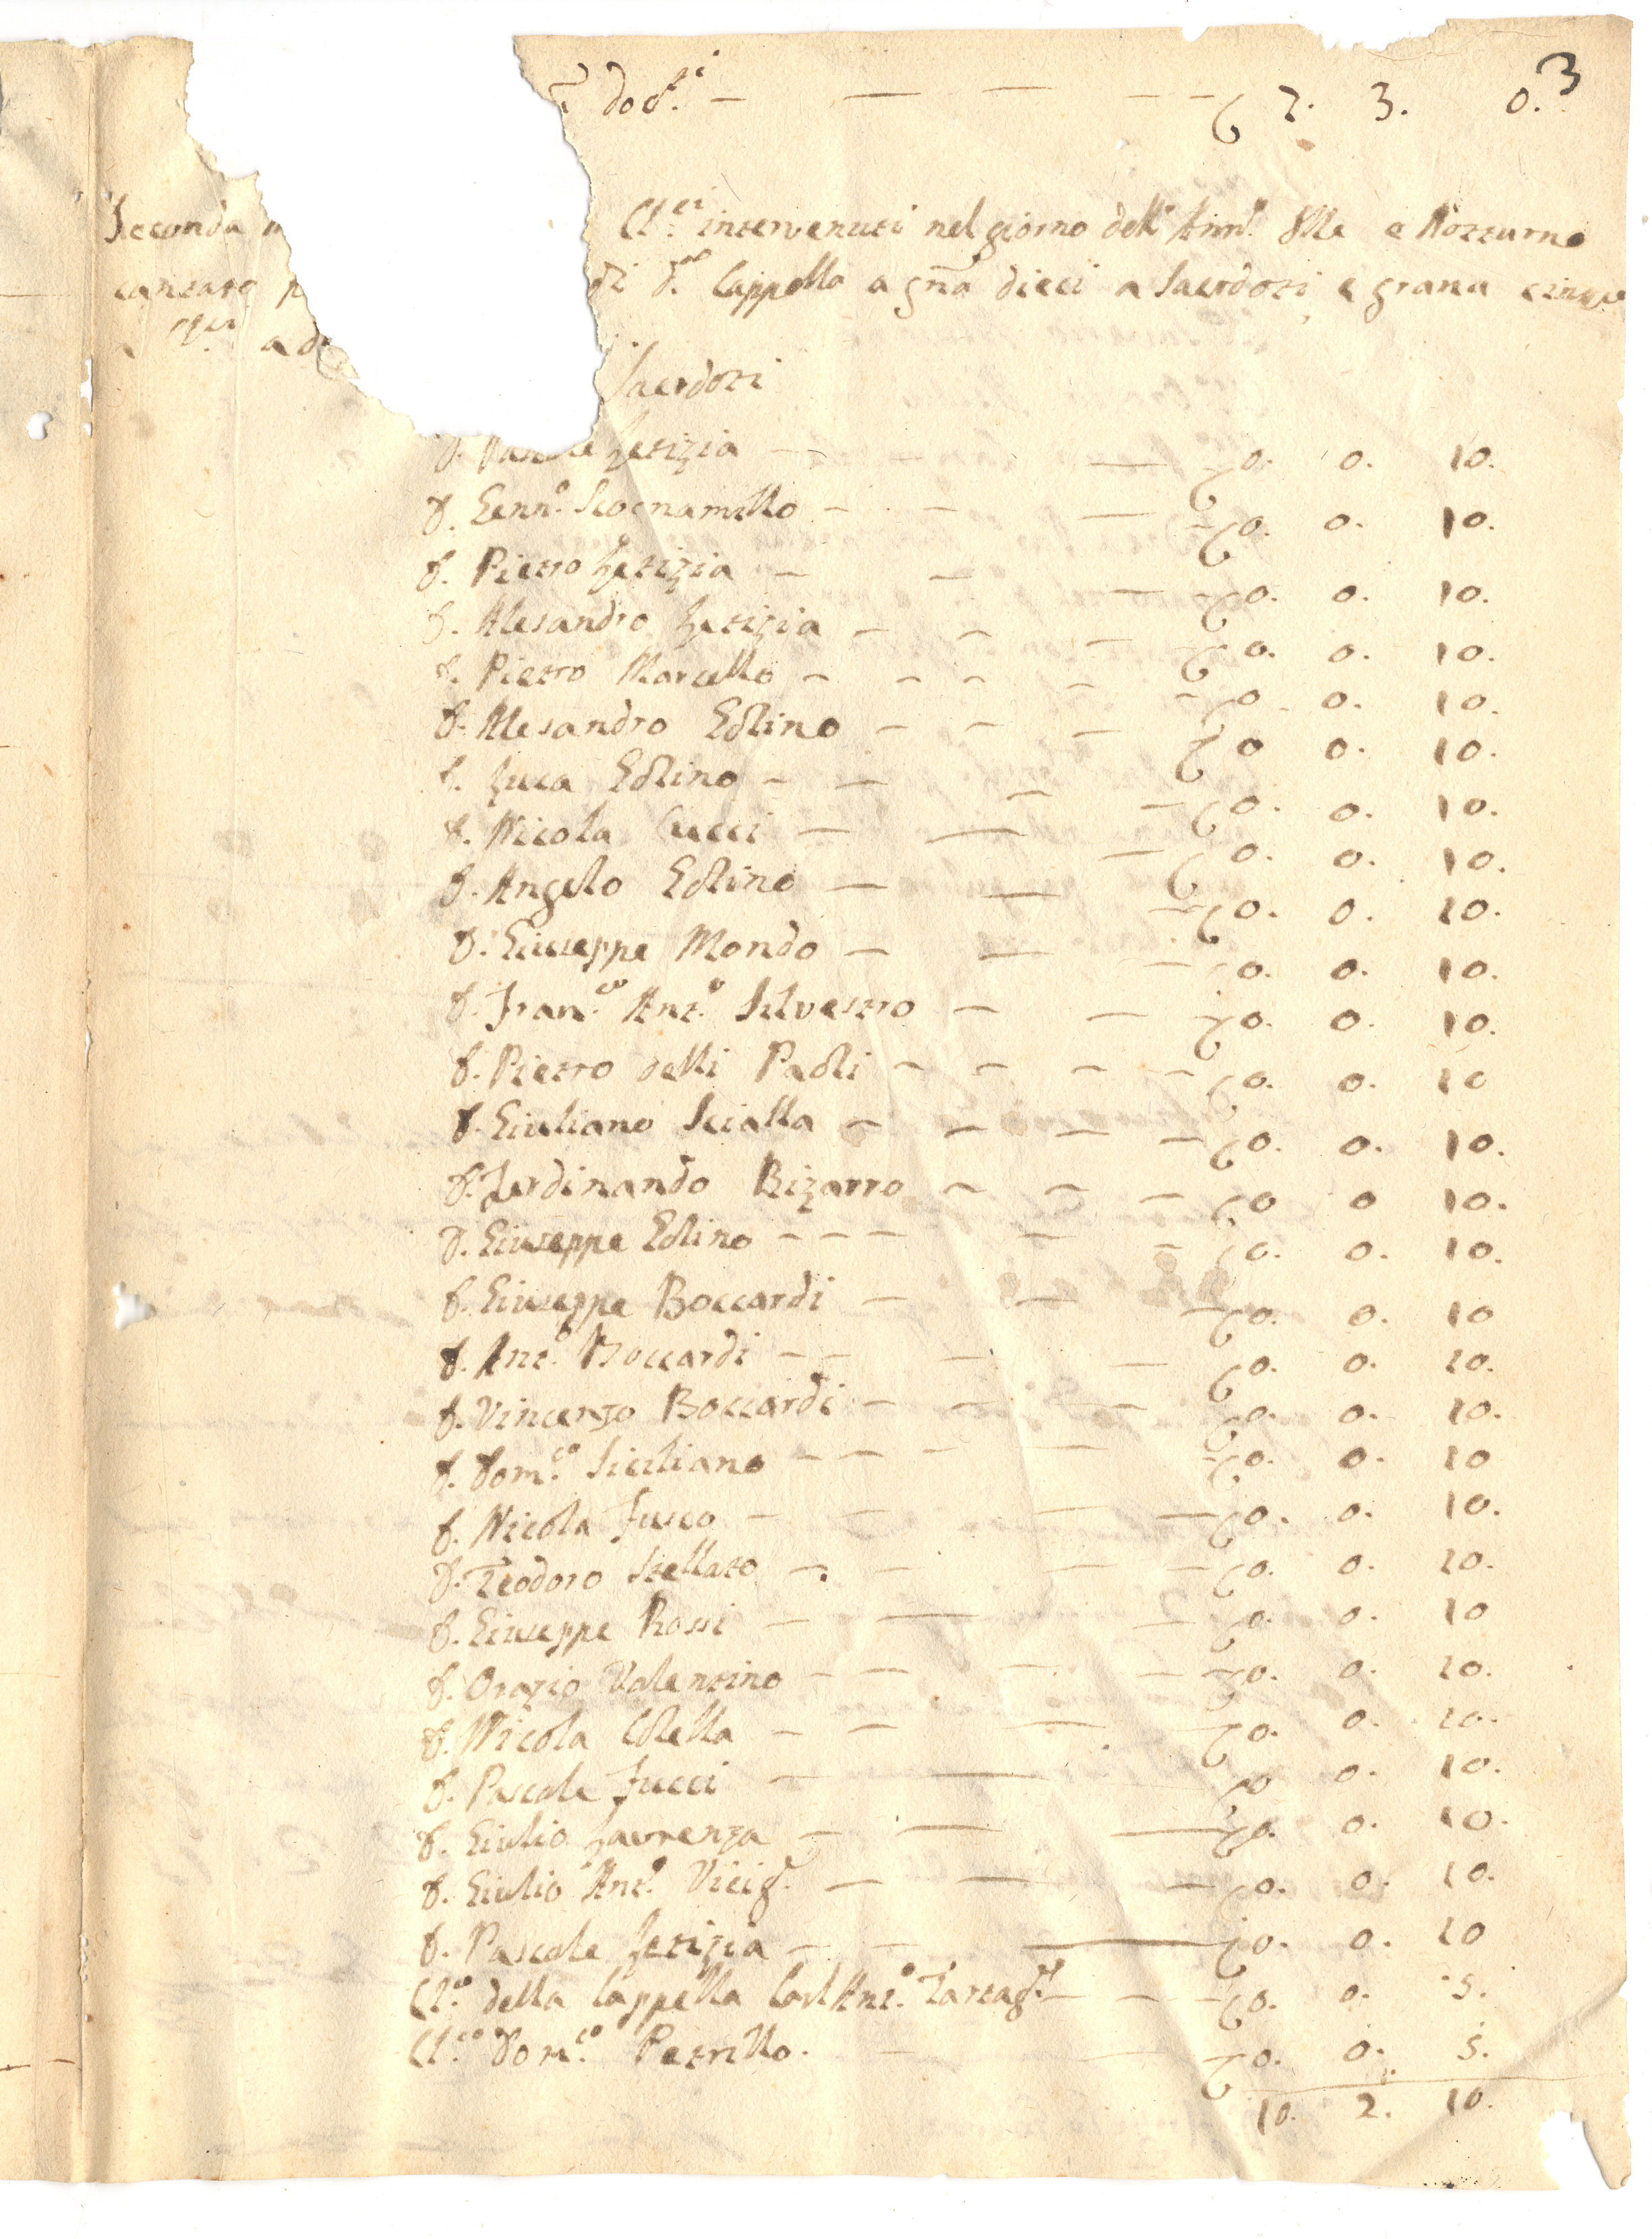 3
doc.ti — — — — 7. 3. 0.
Seconda
Cl.ci intervenuti nel giorno dell' Ann.o Mse e Notturno
cantato
di d.a Cappella a gna dieci a Sacerdoti, e grana cinque
ad
Sacerdoti
D. Pascale Letizia — — — 0. 0. 10.
D. Genn.o Scognamillo — — — 0. 0. 10.
D. Pietro Letizia — — — 0. 0. 10.
D. Alesandro Letizia — — — 0. 0. 10.
D. Pietro Marcello — — — — 0. 0. 10.
D. Alesandro Edlino — — — 0 0. 10.
D. Luca Edlino — — — — 0. 0. 10.
D. Nicola Cucci — — — 0. 0. 10.
D. Angelo Edlino — — — 0. 0. 10.
D. Giuseppe Mondo — — — 0. 0. 10.
D. Fran.co Ant.o Silvestro — — 0. 0. 10.
D. Pietro delli Paoli — — — — 0. 0. 10
D. Giuliano Scialla — — — — 0. 0. 10.
D. Ferdinando Bizarro — — — 0 0 10.
D. Giuseppe Edlino — — — — — 0. 0. 10.
D. Giuseppe Boccardi — — — 0. 0. 10
D. Ant.o Boccardi — — — — 0. 0. 10.
D. Vincenzo Boccardi — — — 0. 0. 10.
D. Dom.co Siciliano — — — — 0. 0. 10
D. Nicola Fusco — — — — 0. 0. 10.
D. Teodoro Stellato — — — — 0. 0. 10.
D. Giuseppe Rossi — — — 0. 0. 10
D. Orazio Valentino — — — — 0. 0. 10.
D. Nicola Colella — — — — 0. 0. 10.
D. Pascale Fucci — — 0 0. 10.
D. Giulio Laurenza — — — 0. 0. 10.
D. Giulio Ant.o — — — 0. 0. 10.
D. Pascale Letizia — — — 0. 0. 10
Cl.co della Cappella Carl'Ant.o — — — 0. 0. 5.
Cl.co Dom.co Petrillo. — — — 0. 0. 5.
10. 2. 10.